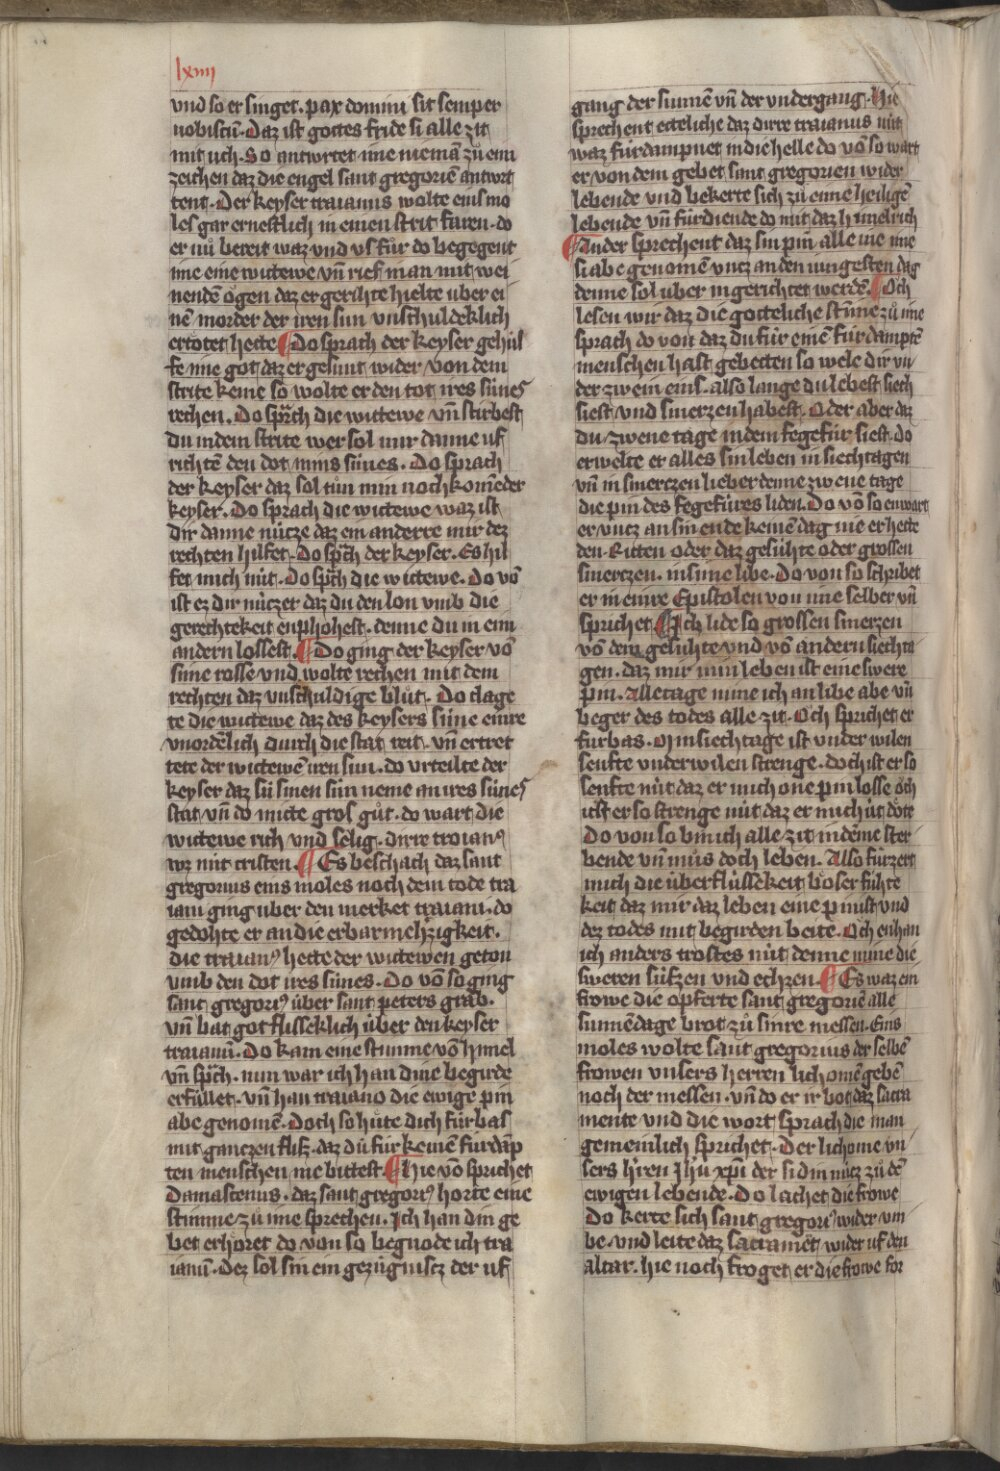 lxiiij
vnd so er singet. pax domini sit semper
uobiscū. Daz ist gottes fride si alle zit
mit uch. So antwrtet ime niemā zů eim
zeichen daz die engel sant gregoriē antwrt
tent. Der keyser traianus wolte eins mo
les gar ernestlich in einen strit faren. do
er nů bereit waz vnd vs für do begegent
ime eine wittewe vn̄ rief in an mit wei
nendē ögen daz er gerihte hielte uber ei
nē morder der iren sun vnschuldeklich
ertötet hette Do sprach der keyser gehúl
fe mie got daz er gesunt wider von dem
strite keme so wolte er den tot ires súnes
rechen. Do sprach die wittewe vn̄ stirbest
du in dem strite wer sol mir danne uf
richtē den dot mins súnes. Do sprach
der keyser daz sol tůn min nochkomēder
keyser. Do sprach die wittewe waz ist
dir danne nútze daz ein anderre mir dez
rechten hilfet. Do sp̄ch der keyser. Es hil
fet mich nút. Do sp̄ch die wittewe. Do vō
ist ez dir nútzer daz du den lon vmb die
gerechtekeit enphohest. denne du in eim
andern lossest. Do ging der keyser vō
sime rosse vnd wolte rechen mit dem
rechten daz vnschuldige blůt. Do clage
te die wittewe daz des keysers súne einre
vnordēlich durch die stat reit. vn̄ ertret
tete der wittewē iren sun. do vrteilte der
keyser daz sú sinen sún neme an ires súnes
stat vn̄ do mitte gros gůt. do wart die
wittewe rich vnd selig. dirre troian9
wz nút cristen. Es beschach daz sant
gregorius eins moles noch dem tode tra
iani ging uber den merket traiani. do
gedohte er an die erbarmehzigkeit.
die traian9 hette der wittewen geton
umb den dot ires súnes. Do vō so ging
sant gregori9 über sant peters grab.
vn̄ bat got flisseklich über den keyser
traianū. Do kam eine stimme vō himel
vn̄ sp̄ch. nim war ich han dine begirde
erfúllet. vn̄ han traiano die ewige pin
abe genomē. Doch so hůte dich fúrbas
mit ganczen flis. daz dů fúr keinē fúrdāp
ten menschen me bittest. Hie vō sprichet
Damascenus. daz sant gregori9 horte eine
stimme zů ime sprechen. Ich han din ge
bet erhöret do von so begnode ich tra
ianū. Dez sol sin ein gezúgnisz der uf
gang der sunnē vn̄ der vndergang. Hie
sprechent etteliche daz dirre traianus nút
waz fúrdampnet in die helle do vō so wart
er von dem gebet sant gregorien wider
lebende vnd bekerte sich zů eime heiligē
lebende vn̄ fúrdiende do mit daz himelrich
Ander sprechent daz sin pin alle nie ime
si abe genomē vncz an den iungesten dag
denne sol uber in gerichtet werdē. Och
lesen wir daz die gotteliche stīme zů ime
sprach do von daz du fúr einē fúrdamptē
menschen hast gebetten so wele dir vn
der zwein eins. also lange du lebest siech
siest vnd smerzen habest. Oder aber daz
du zwene tage in dem fegefúr siest. do
erwelte er alles sin leben in siechtagen
vn̄ in smerczen lieber denne zwene tage
die pin des fegefúres liden. Do vō so enwart
er vncz an sin ende keinē dag nie er hette
den Ritten oder daz gesúhte oder grossen
smerczen. in sime libe. Do von so schribet
er in einre Epistolen von ime selber vn̄
sprichet Ich lide so grossen smerzen
vō dem gesúhte vnd vō andern siechta
gen. daz mir min leben ist eine swere
pin. Alle tage nime ich an libe abe vn̄
beger des todes alle zit. Och sprichet er
fúrbas. Min siechtage ist vnder wilen
senfte vnderwilen strenge. doch ist er so
senfte nút daz er mich one pin losse och
ist er so strenge nút daz er mich út döte
Do von so bin ich alle zit in deme ster
bende vn̄ můs doch leben. Also fúrzert
mich die überflússekeit böser fúhte
keit daz mir daz leben eine pin ist vnd
dez todes mit begirden beite. Och enhan
ich anders trostes nút denne mine die
sweren súfzen vnd echzen. Es waz ein
frowe die opferte sant gregoriē alle
sunnēdage brot zů sinre messen. Eins
moles wolte sant gregorius der selbē
frowen vnsers herren lichomē gebē
noch der messen. vn̄ do er ir bot daz sacra
mente vnd die wort sprach die man
gemeinlich sprichet. Der lichome vn
sers h̄ren Jhū xp̄i der si din nucz zů dē
ewigen lebende. Do lachet die frowe
Do kerte sich sant gregori9 wider vm
be. vnd leite daz sacramēt wider uf den
altar. hie noch froget er die frowe for